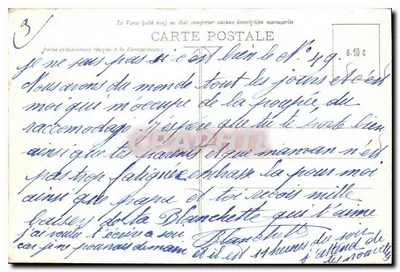 3)
Le Verso (côté vue) ne doit comporter aucune inscription manuscrite
CARTE POSTALE
Partie exclusivement réservée à la Correspondance
0.10 c
je ne sais pas si c'est bien le N° 49.
Nous avons du monde tout les jours et c'est
moi que m'occupe de la poupée, du
raccomodage j'espère que tu te porte bien
ainsi que tes et que maman n'est
pas trop fatiguée embrasse la pour moi
ainsi que papa et toi reçois mille
baisers de ta Blanchette que t'aime
Blanchette
j'ai voulu t'écrire ce soir
car je ne pourrais demain
et il est 11 heures du soir
j'attend de
tes nouvelles